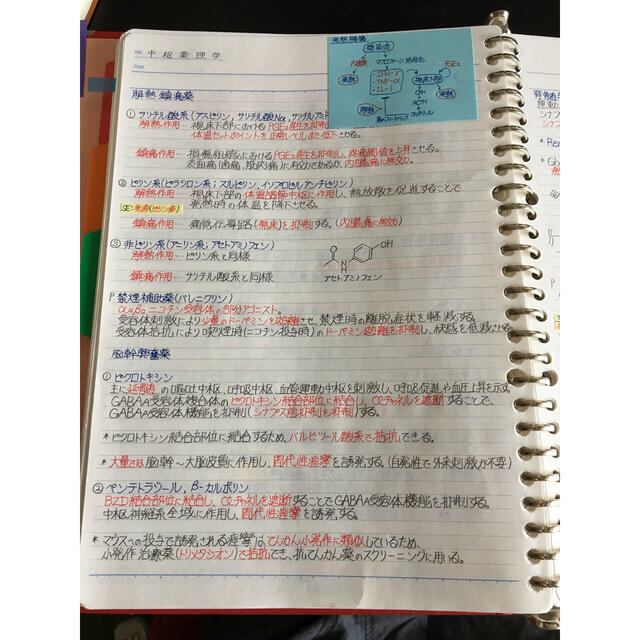 No. 中枢薬理学
Date
発熱機構
感染症
内毒素
マクロファージ活性化
PGE₂
発熱
・IFN-γ
・TNF-α
・IL-1
視床下部
発熱
CRH
ACTH
コルチゾール
解熱鎮痛薬
① サリチル酸系(アスピリン, サリチル酸Na, サリチルアミド
解熱作用‥視床下部におけるPGE₂産生を抑制
体温セットポイントを正常レベルまで低下させる。
鎮痛作用‥損傷組織におけるPGE₂産生を抑制し、疼痛閾値を上昇させる。
表面痛(歯痛, 筋肉痛)に有効であるが、内臓痛に無効。
② ピリン系(ピラゾロン系;スルピリン, イソプロピルアンチピリン)
解熱作用‥視床下部の体温調節中枢に作用し、熱放散を促進することで
発熱時の体温を下降させる。
SE:発疹(ピリン疹)
鎮痛作用‥痛覚伝導路(視床)を抑制する。(内臓痛に無効)
③ 非ピリン系(アニリン系;アセトアミノフェン)
解熱作用‥ピリン系と同様
鎮痛作用‥サリチル酸系と同様
OH
O
N
H
アセトアミノフェン
P 禁煙補助薬(バレニクリン)
α₄β₂ニコチン受容体の部分アゴニスト。
受容体刺激により少量のドーパミンを遊離させ、禁煙時の離脱症状を軽減する。
受容体拮抗により喫煙時(ニコチン投与時)のドーパミン遊離を抑制し、快感を低減させる。
脳幹興奮薬
① ピクロトキシン
主に延髄の嘔吐中枢、呼吸中枢、血管運動中枢を刺激し、呼吸促進や血圧上昇を示す。
GABAA受容体複合体のピクロトキシン結合部位に結合し、Clチャネルを遮断することで、
GABAA受容体機能を抑制(シナプス後抑制を抑制)する。
*ピクロトキシン結合部位に結合するため、バルビツール酸系で拮抗できる。
*大量では脳幹〜大脳皮質に作用し、間代性痙攣を誘発する。(自発性で外来刺激が不要)
② ペンテトラゾール, β-カルボリン
BZD結合部位に結合し、Clチャネルを遮断することでGABAA受容体機能を抑制する。
中枢神経系全域に作用し、間代性痙攣を誘発する。
*マウスへの投与で誘発される痙攣は、てんかん小発作に類似しているため、
小発作治療薬(トリメタジオン)で拮抗でき、抗てんかん薬のスクリーニングに用いる。